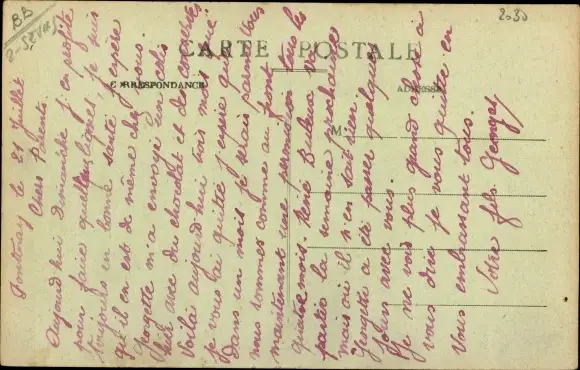 BB
2-Sèvres
2030
CARTE POSTALE
CORRESPONDANCE
ADRESSE
M.
Fontenay le 21 Juillet
Chers Parents
Aujourd'hui Dimanche j'en profite
pour faire quelques lignes, je suis
toujours en bonne santé j'espère
qu'il en est de même chez vous.
Georgette m'a envoyé un colis
avec du chocolat et des
Voilà aujourd'hui trois mois que
je vous ai quitté j'espère que
dans un mois je serais parmi vous
nous sommes comme au front
maintenant une permission tous les
quatre mois. René va
partir la semaine prochaine
mais où il n'en sait rien.
Georgette a été passer quelques
jours avec vous.
Je ne vois plus grand chose à
vous dire je vous quitte en
vous embrassant tous.
Votre fils Georges